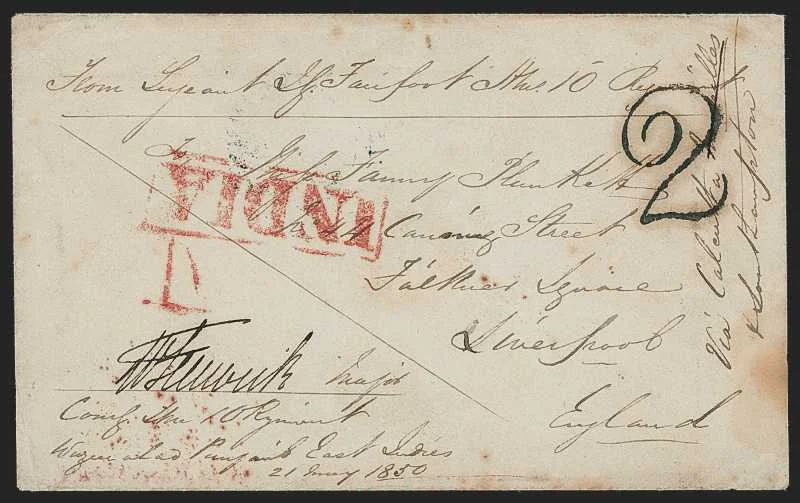 From Serjeant Js. Fairfoot Hms. 10 Regiment
To Miss Fanny Plunkett
No. 44 Canning Street
Falkner Square
Liverpool
England
INDIA
2
Via Calcutta
& Southampton
Major
Comg. Hm 10 Regiment
Wuzeerabad Punjaub East Indies
21 May 1850